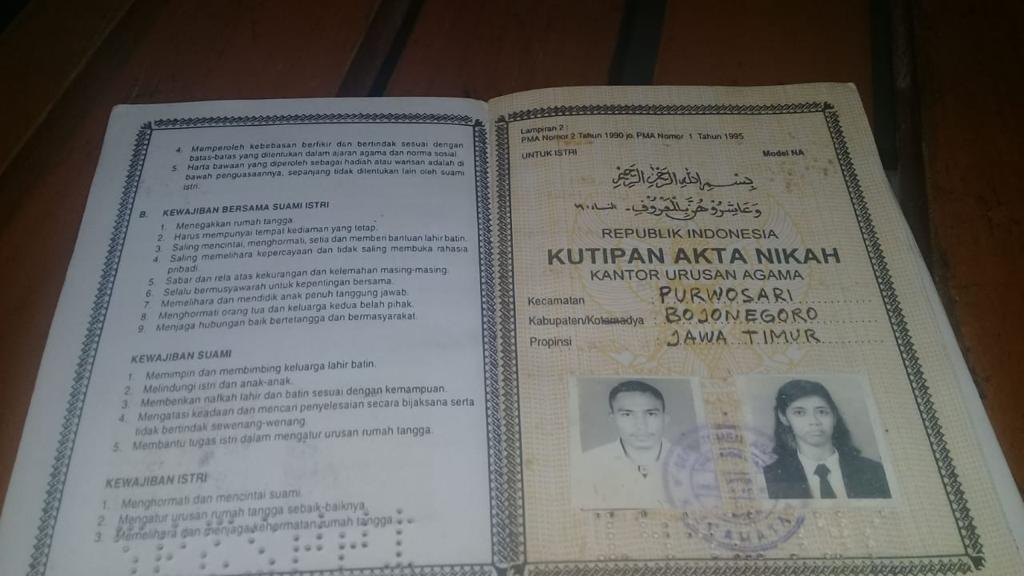 4. Memperoleh kebebasan berfikir dan bertindak sesuai dengan
batas-batas yang ditentukan dalam ajaran agama dan norma sosial.
5. Harta bawaan yang diperoleh sebagai hadiah atau warisan adalah di
bawah penguasaannya, sepanjang tidak ditentukan lain oleh suami
istri.
B. KEWAJIBAN BERSAMA SUAMI ISTRI
1. Menegakkan rumah tangga.
2. Harus mempunyai tempat kediaman yang tetap.
3. Saling mencintai, menghormati, setia dan memberi bantuan lahir batin.
4. Saling memelihara kepercayaan dan tidak saling membuka rahasia
pribadi.
5. Sabar dan rela atas kekurangan dan kelemahan masing-masing.
6. Selalu bermusyawarah untuk kepentingan bersama.
7. Memelihara dan mendidik anak penuh tanggung jawab.
8. Menghormati orang tua dan keluarga kedua belah pihak.
9. Menjaga hubungan baik bertetangga dan bermasyarakat.
KEWAJIBAN SUAMI
1. Memimpin dan membimbing keluarga lahir batin.
2. Melindungi istri dan anak-anak.
3. Memberikan nafkah lahir dan batin sesuai dengan kemampuan.
4. Mengatasi keadaan dan mencari penyelesaian secara bijaksana serta
tidak bertindak sewenang-wenang
5. Membantu tugas istri dalam mengatur urusan rumah tangga.
KEWAJIBAN ISTRI
1. Menghormati dan mencintai suami.
2. Mengatur urusan rumah tangga sebaik-baiknya
3. Memelihara dan menjaga kehormatan rumah tangga.
Lampiran 2 :
PMA Nomor 2 Tahun 1990 jo. PMA Nomor 1 Tahun 1995
UNTUK ISTRI Model NA
بسم الله الرحمن الرحيم
وعاشروهن بالمعروف - النساء
REPUBLIK INDONESIA
KUTIPAN AKTA NIKAH
KANTOR URUSAN AGAMA
Kecamatan : PURWOSARI
Kabupaten/Kotamadya : BOJONEGORO
Propinsi : JAWA TIMUR